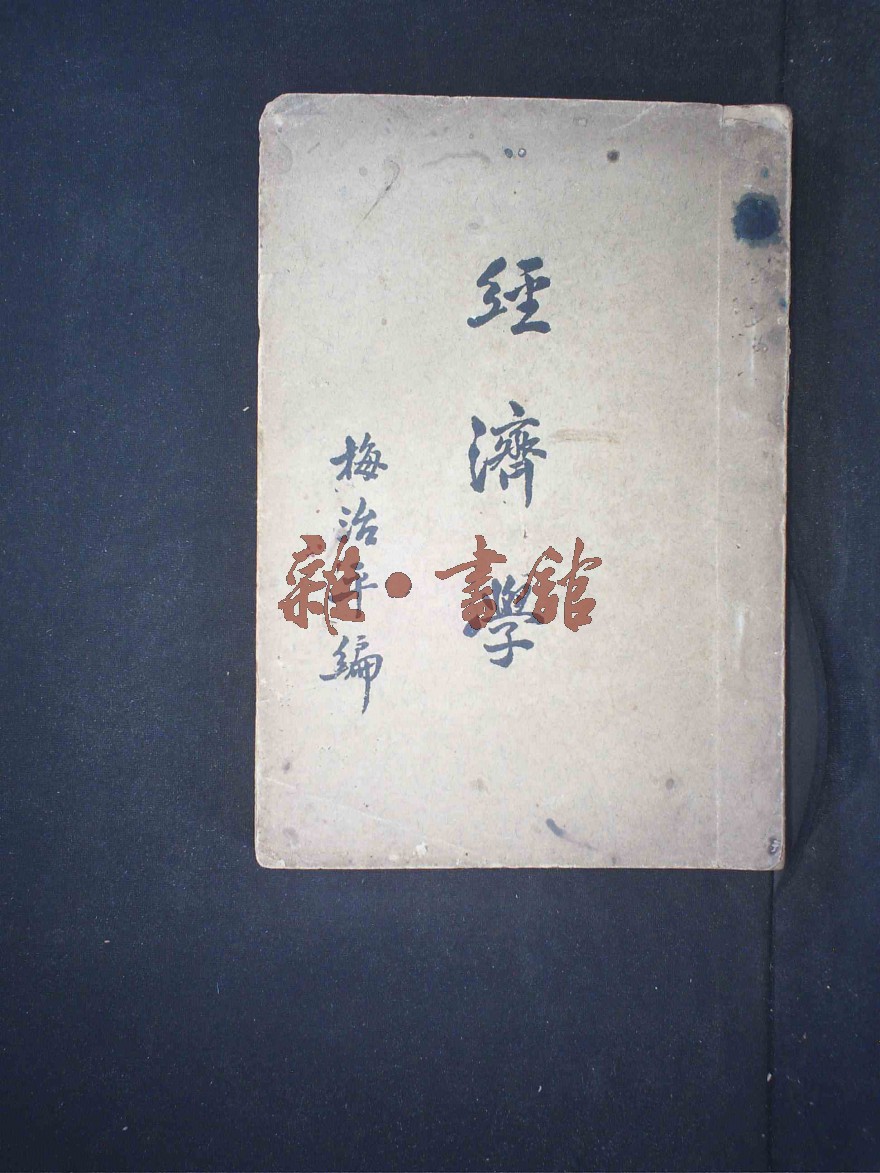 經濟學
梅治平編
雜·書館